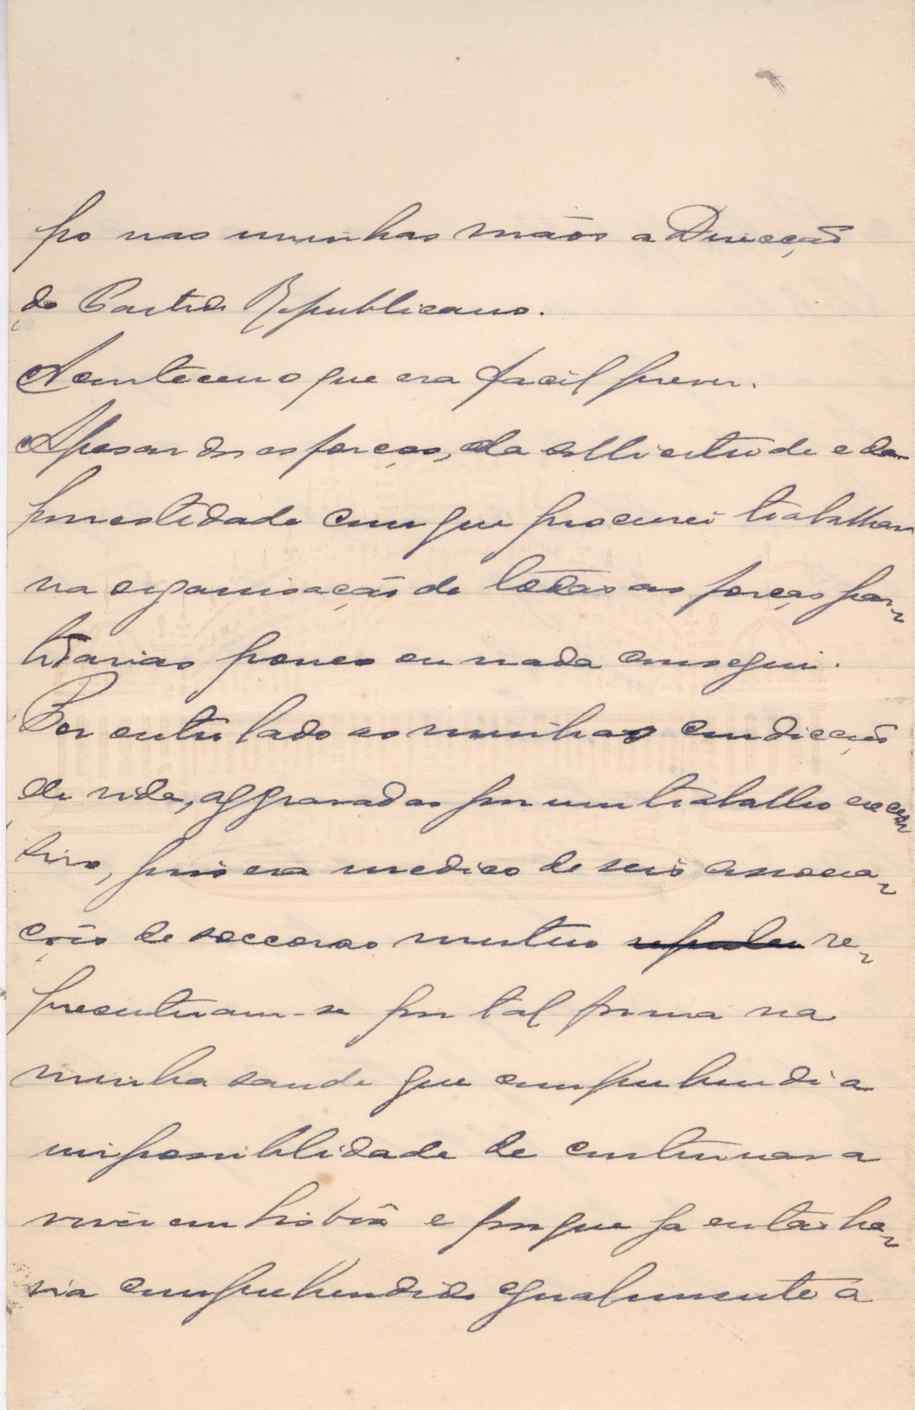 po nas minhas mãos a Direcção
do Partido Republicano.
Aconteceu o que era facil prever.
Apesar dos esforços, da sollicitude e da
honestidade com que procurei trabalhar
na organisação de todas as forças par-
tidarias pouco ou nada consegui.
Por outro lado as minhas condicções
de vida, aggravadas por um trabalho excess
sivo, pois era medico de seis associa-
ções de soccorros mutuos re-
presentaram-se por tal forma na
minha saude que comprehendi a
impossiblidade de continuar a
viver em Lisbôa e porque ja então ha-
via comprehendido egualmente a